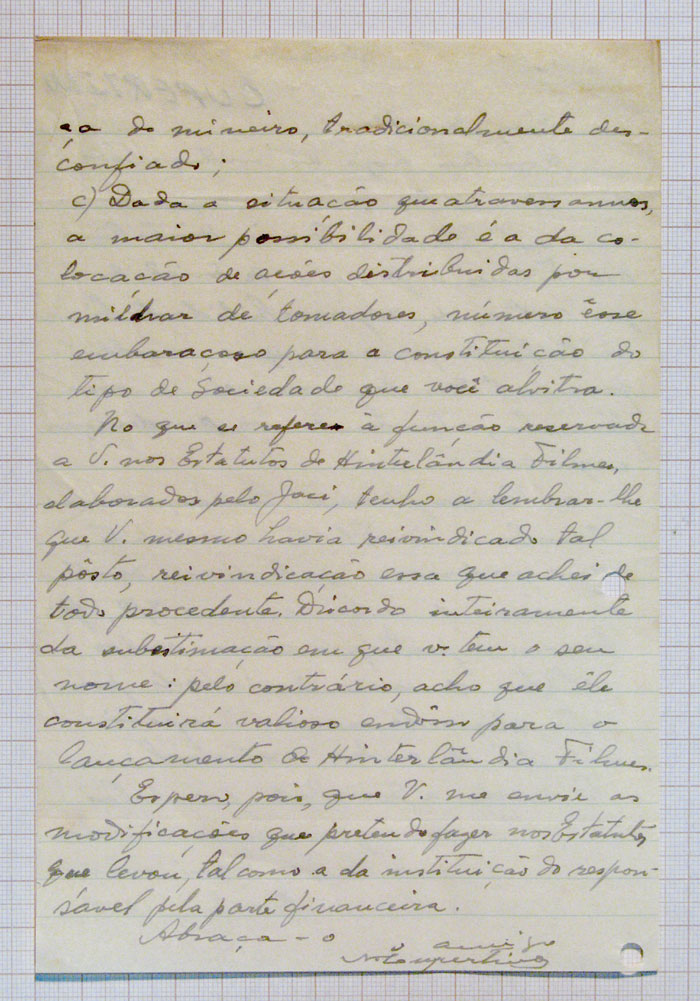 ça do mineiro, tradicionalmente des-
confiado;
c) Dada a situação que atravessamos,
a maior possibilidade é a da co-
locação de ações distribuidas por
milhar de tomadores, número êsse
embaraçoso para a constituição do
tipo de Sociedade que você alvitra.
No que se refere à função reservada
a V. nos Estatutos de Hinterlândia Filmes,
elaborados pelo Joci, tenho a lembrar-lhe
que V. mesmo havia reivindicado tal
pôsto, reivindicação essa que achei de
todo procedente. Discordo inteiramente
da subestimação em que v. tem o seu
nome: pelo contrário, acho que êle
constituirá valioso endôsso para o
lançamento de Hinterlândia Filmes.
Espero, pois, que V. me envie as
modificações que pretendo fazer nos Estatutos
que levou, tal como a da instituição do respon-
sável pela parte financeira.
Abraça-o
o amigo